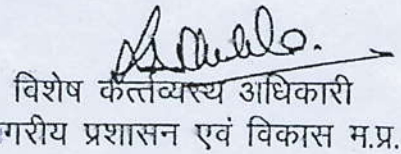 विशेष कर्त्तव्यस्थ अधिकारी
गरीय प्रशासन एवं विकास म.प्र.